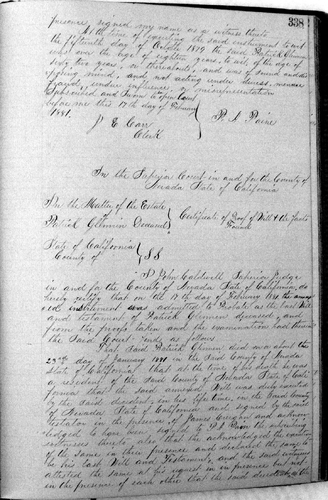 338
presence, signed my name as a witness thereto
At the time of signing the said instrument to wit
the fifteenth day of October 1879 the said Patrick
was over the age of eighteen years, to wit, of the age of
sixty two years, or thereabouts, and was of sound and dis
posing mind, and, not acting under duress, menace
fraud, undue influence, or misrepresentation
Subscribed and sworn to
before me this 17th day of February
1881.
R. S. Paine
J E Carr
Clerk
In the Superior Court in and for the County of
Nevada State of California
In the Matter of the Estate
of
Patrick Deceased
Certificate of Proof of Will & the Facts
Found
State of California
County of
SS
I John Caldwell Superior Judge
in and for the County of Nevada State of California, do
hereby certify that on the 17th day of February 1881 the annex
ed instrument was admitted to Probate as the last Will
and testament of Patrick deceased, and
from the proofs taken and the examination had therein
the said Court finds as follows
That said Patrick died on or about the
22nd day of January 1881 in the said County of Nevada
State of California that at the time of his death he was
a resident of the said County of Nevada State of Cali
fornia that the said annexed Will was duly executed
by the said decedent, in his life time, in the said County
of Nevada State of California and signed by the said
testator in the presence of James and acknow
ledged to have been signed to R S Paine the subscribing
witnesses thereto also that he acknowledged the execution
of the same in their presence and declared the same to
be his last Will and Testament, and the said witnesses
attested the same at his request in his presence but not
in the presence of each other that the said decedent